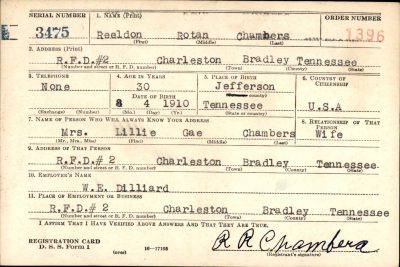 SERIAL NUMBER 1. NAME (Print) ORDER NUMBER
E 3475 Reeldon Rotan Chambers 1396
(First) (Middle) (Last)
2. ADDRESS (Print)
R.F.D.#2 Charleston Bradley Tennessee
(Number and street or R. F. D. number) (Town) (County) (State)
3. TELEPHONE 4. AGE IN YEARS 5. PLACE OF BIRTH 6. COUNTRY OF CITIZENSHIP
None 30 Jefferson
DATE OF BIRTH (Town or county)
8 4 1910 Tennessee U.S.A
(Exchange) (Number) (Mo.) (Day) (Yr.) (State or country)
7. NAME OF PERSON WHO WILL ALWAYS KNOW YOUR ADDRESS 8. RELATIONSHIP OF THAT PERSON
Mrs. Lillie Gae Chambers Wife
(Mr., Mrs., Miss) (First) (Middle) (Last)
9. ADDRESS OF THAT PERSON
R.F.D.# 2 Charleston Bradley Tennessee
(Number and street or R. F. D. number) (Town) (County) (State)
10. EMPLOYER'S NAME
W.E. Dilliard
11. PLACE OF EMPLOYMENT OR BUSINESS
R.F.D.# 2 Charleston Bradley Tennessee
(Number and street or R. F. D. number) (Town) (County) (State)
I AFFIRM THAT I HAVE VERIFIED ABOVE ANSWERS AND THAT THEY ARE TRUE.
REGISTRATION CARD
D. S. S. Form 1 (over) 16—17105 R R Chambers
(Registrant's signature)